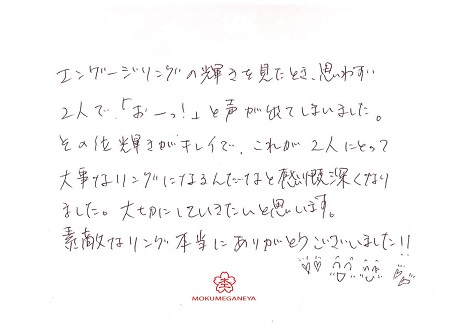 エンゲージリングの輝きを見たとき、思わず
2人で、「おーっ!」と声が出てしまいました。
その位輝きがキレイで、これが2人にとって
大事なリングになるんだなと感慨深くなり
ました。大切にしていきたいと思います。
素敵なリング本当にありがとうございました!!
MOKUMEGANEYA